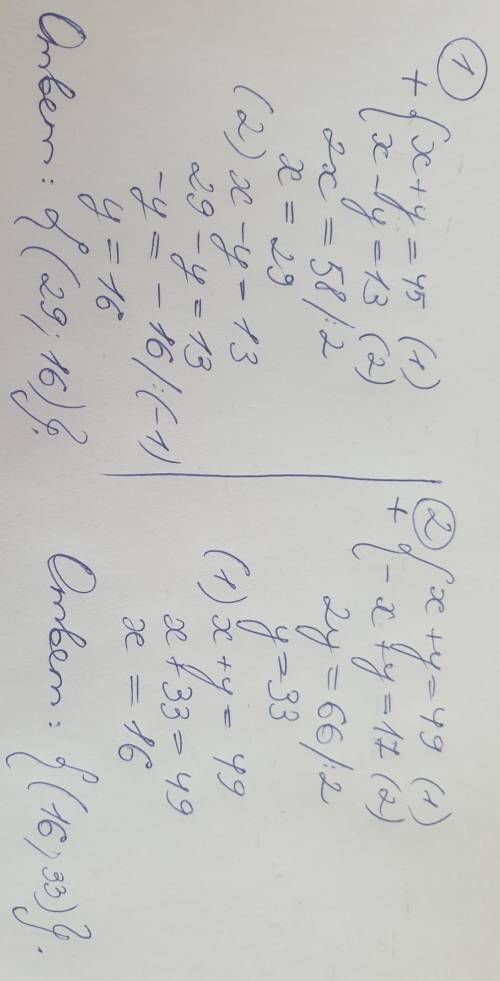 1
+ { x + y = 45 (1)
x - y = 13 (2)
2x = 58 / : 2
x = 29
(2) x - y = 13
29 - y = 13
-y = - 16 / : (-1)
y = 16
Ответ: {(29; 16)}.
2
+ { x + y = 49 (1)
- x + y = 17 (2)
2y = 66 / : 2
y = 33
(1) x + y = 49
x + 33 = 49
x = 16
Ответ: {(16; 33)}.